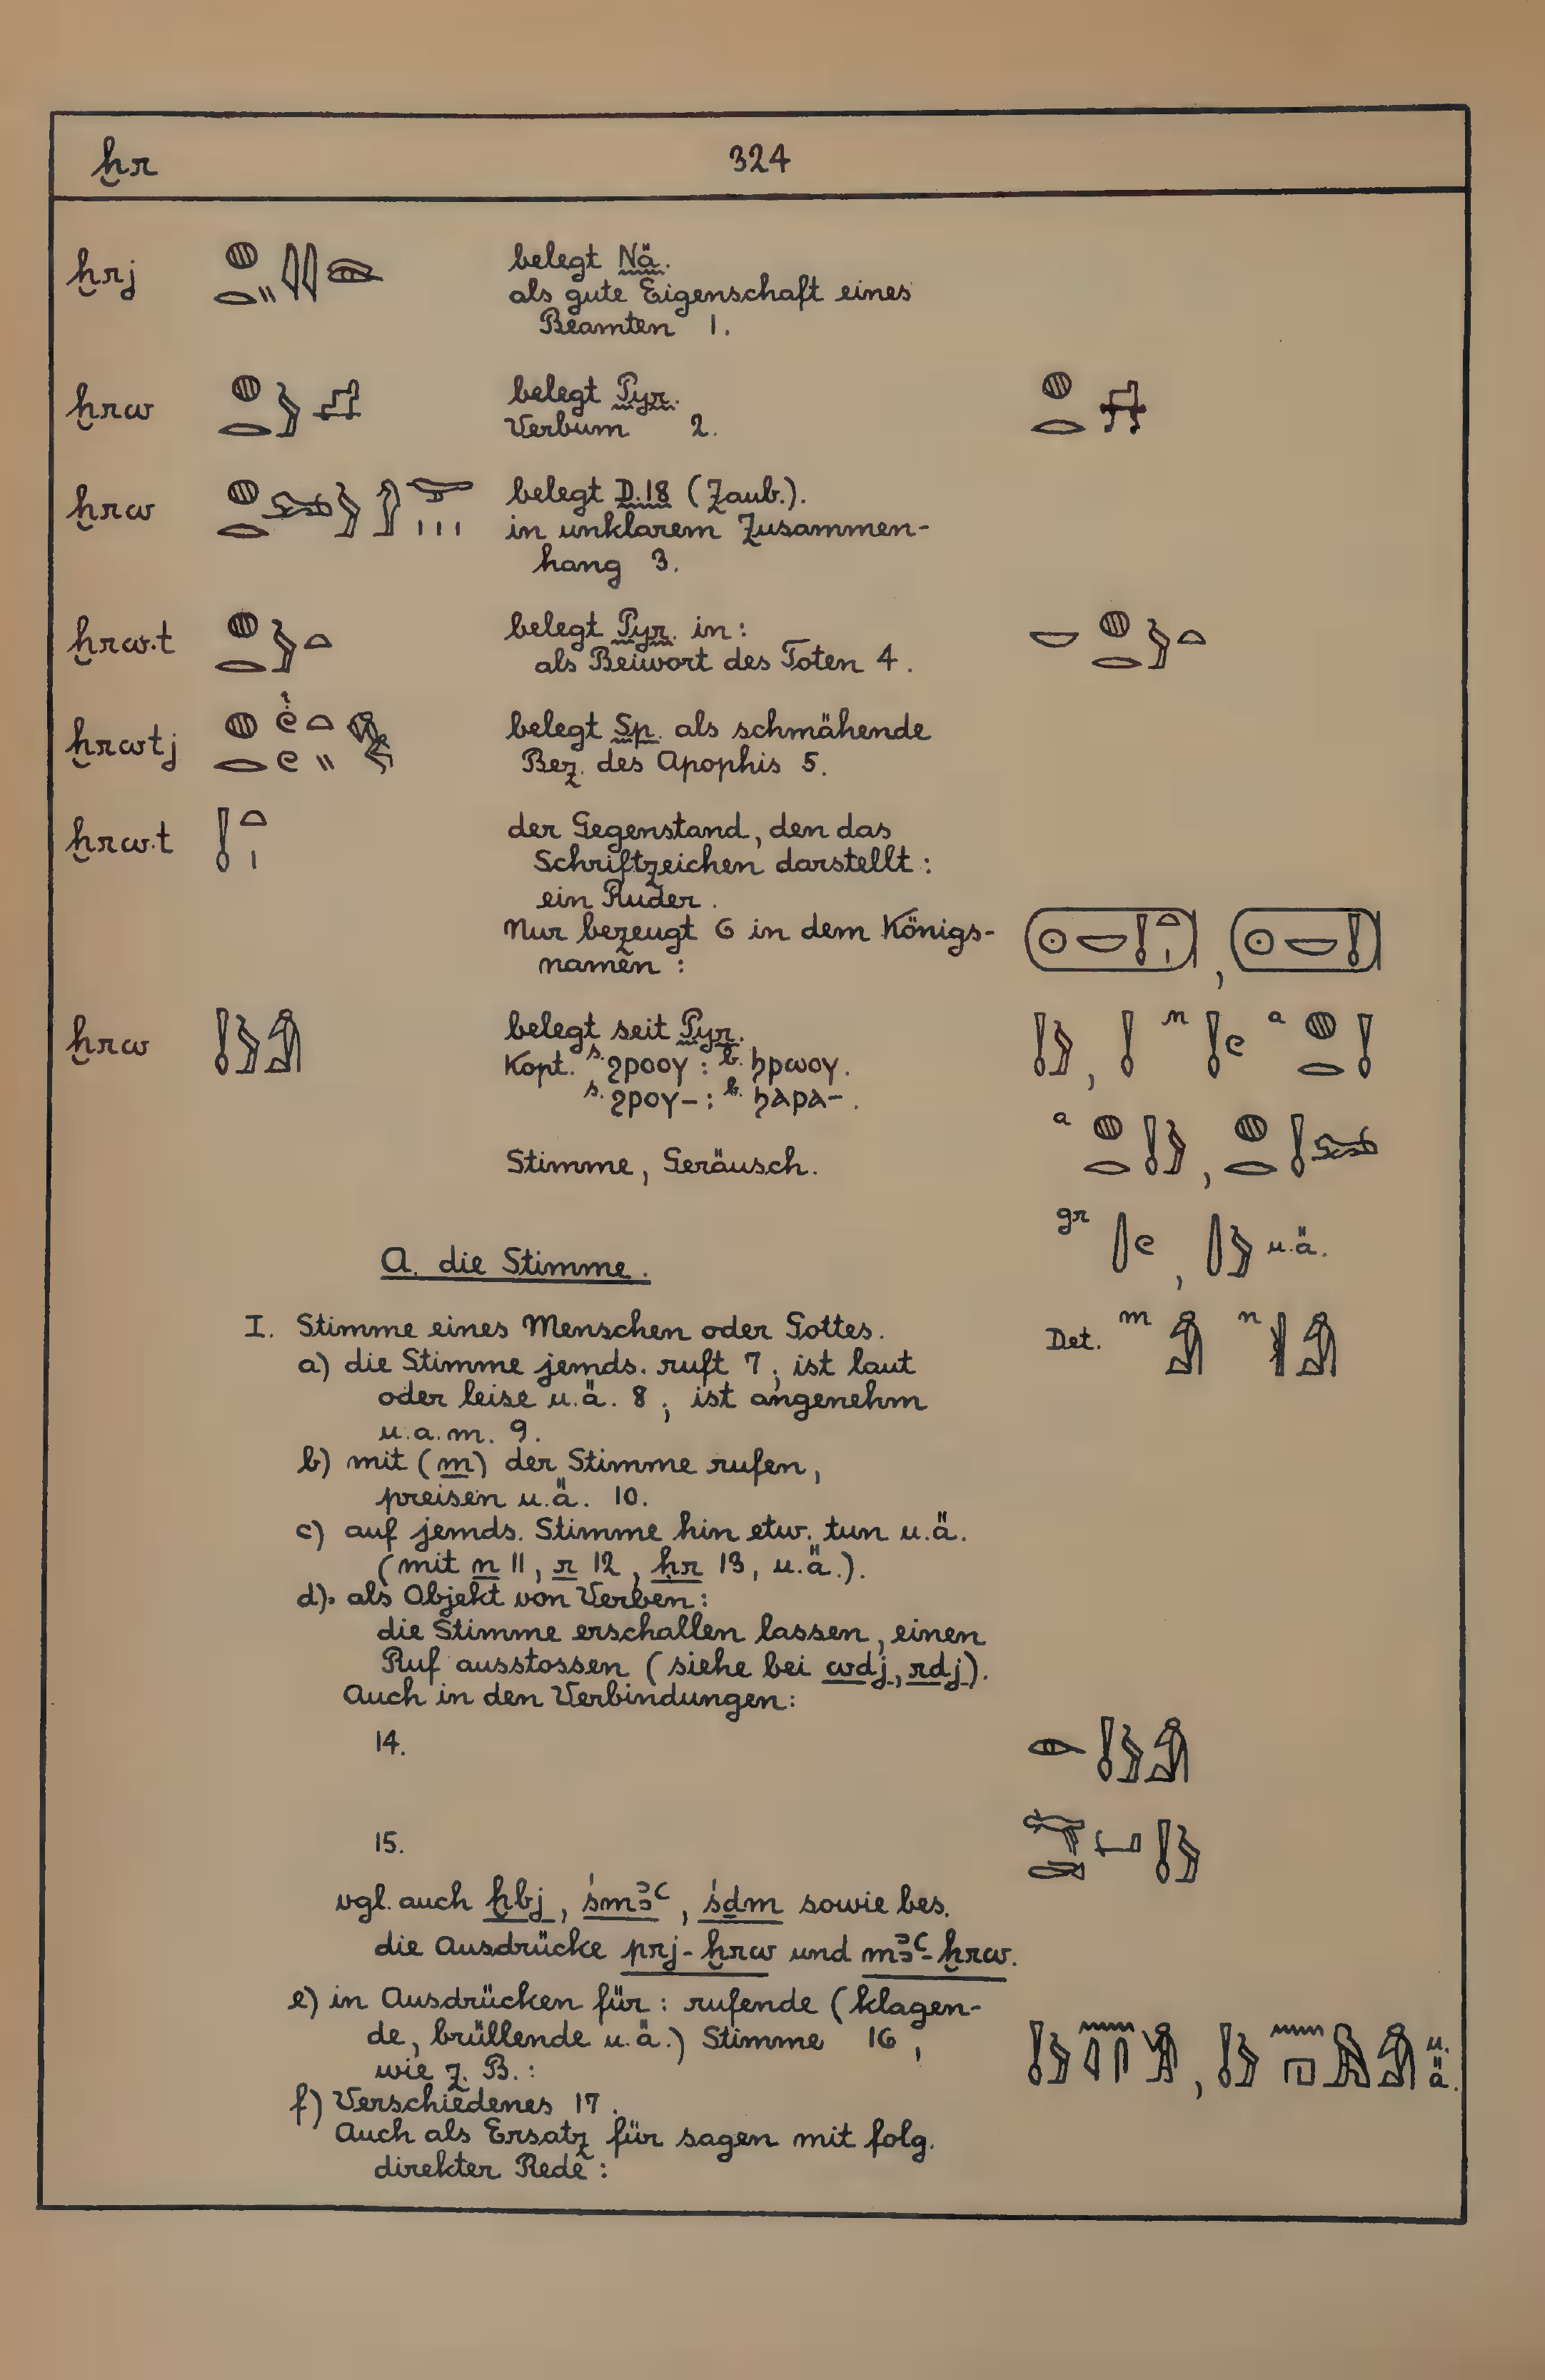 ḫr 324
ḫrj belegt Nä.
als gute Eigenschaft eines
Beamten 1.
ḫrw belegt Pyr.
Verbum 2.
ḫrw belegt D.18 (Zaub.).
in unklarem Zusammen-
hang 3.
ḫrw.t belegt Pyr. in:
als Beiwort des Toten 4.
ḫrwtj belegt Sp. als schmähende
Bez. des Apophis 5.
ḫrw.t der Gegenstand, den das
Schriftzeichen darstellt:
ein Ruder.
Nur bezeugt 6 in dem Königs-
namen:
ḫrw belegt seit Pyr.
Kopt. s. ϩⲣⲟⲟⲩ : b. ϧⲣⲱⲟⲩ.
s. ϩⲣⲟⲩ- : b. ϧⲁⲣⲁ-.
n a
a
Stimme, Geräusch.
gr u.ä.
A. die Stimme.
I. Stimme eines Menschen oder Gottes.
Det. m n
a) die Stimme jemds. ruft 7; ist laut
oder leise u.ä. 8; ist angenehm
u.a.m. 9.
b) mit (m) der Stimme rufen,
preisen u.ä. 10.
c) auf jemds. Stimme hin etw. tun u.ä.
(mit n 11, r 12, ḥr 13, u.ä.).
d) als Objekt von Verben:
die Stimme erschallen lassen, einen
Ruf ausstossen (siehe bei wdj, rdj).
Auch in den Verbindungen:
14.
15.
vgl. auch ḫbj, śmꜣꜥ, śḏm sowie bes.
die Ausdrücke prj-ḫrw und mꜣꜥ-ḫrw.
e) in Ausdrücken für: rufende (klagen-
de, brüllende u.ä.) Stimme 16,
wie z. B.: u.ä.
f) Verschiedenes 17.
Auch als Ersatz für sagen mit folg.
direkter Rede: